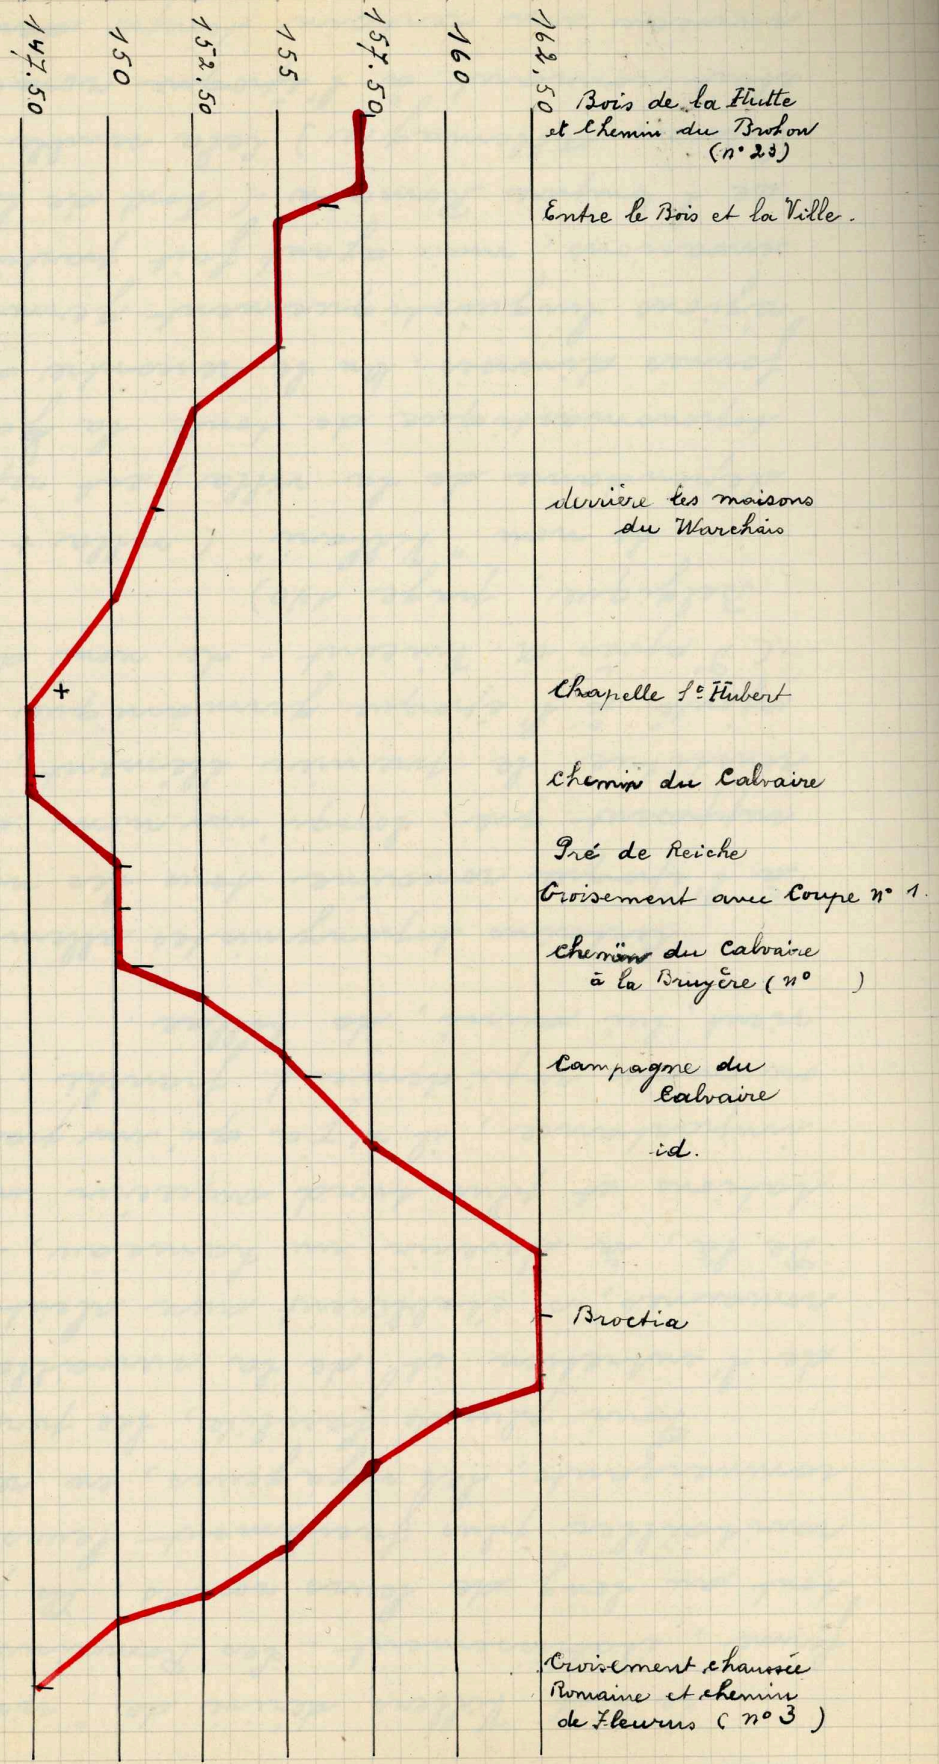 147.50
150
152.50
155
157.50
160
162.50
Bois de la Hutte
et Chemin du Brohon
(n° 23)
Entre le Bois et la Ville.
derrière les maisons
du Warchais
Chapelle St Hubert
Chemin du Calvaire
Pré de Reiche
Croisement avec Coupe n° 1.
chemin du Calvaire
à la Bruyère (n° )
Campagne du
Calvaire
id.
Broctia
Croisement chaussée
Romaine et chemin
de Fleurus (n° 3)